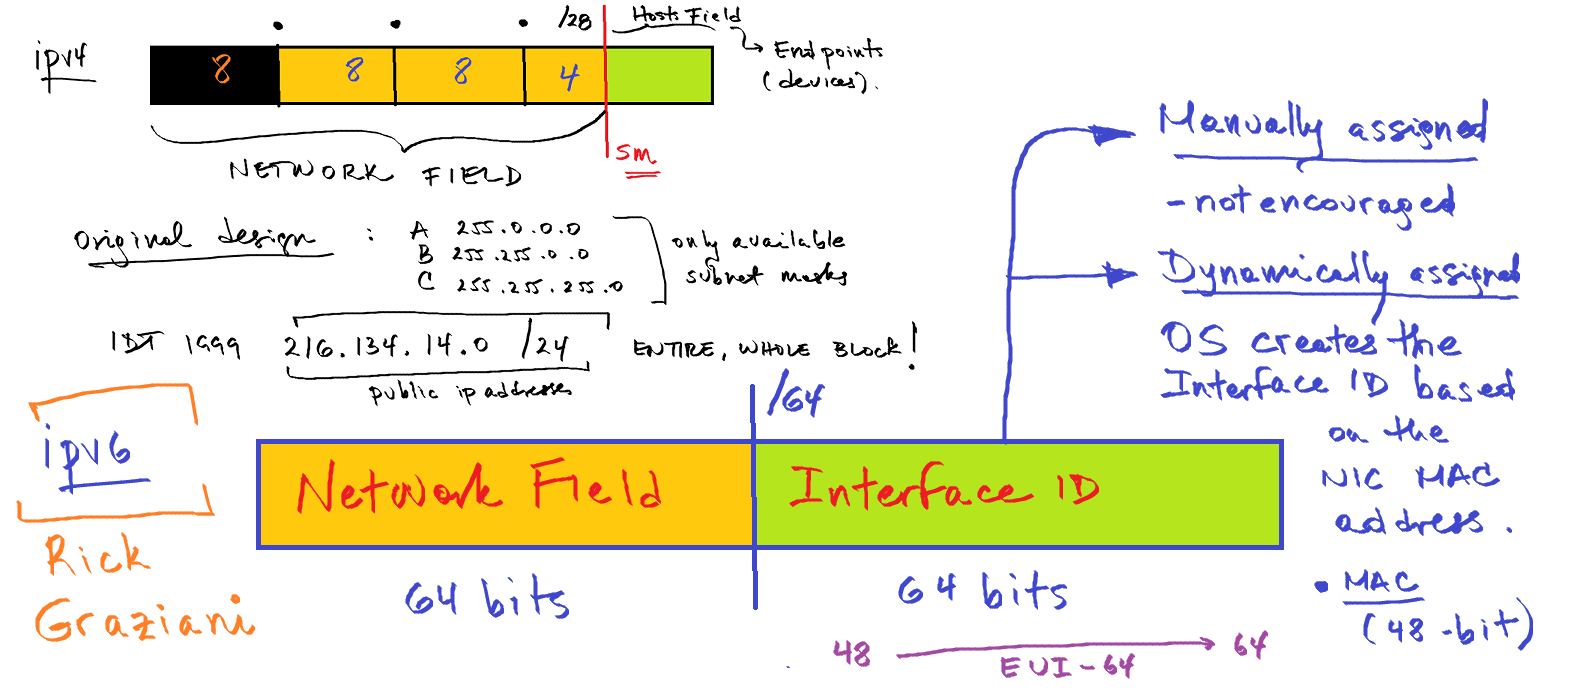 ipv4
/28
Hosts Field
8 8 8 4
End points
(devices).
NETWORK FIELD
SM
Original design : A 255.0.0.0
B 255.255.0.0
C 255.255.255.0
only available
subnet masks
IDT 1999 216.134.14.0 /24 ENTIRE, WHOLE BLOCK!
public ip addresses
ipv6
Rick
Graziani
/64
Network Field
Interface ID
64 bits
64 bits
48 EUI-64 64
Manually assigned
- not encouraged
Dynamically assigned
OS creates the
Interface ID based
on the
NIC MAC
address.
• MAC
(48-bit)